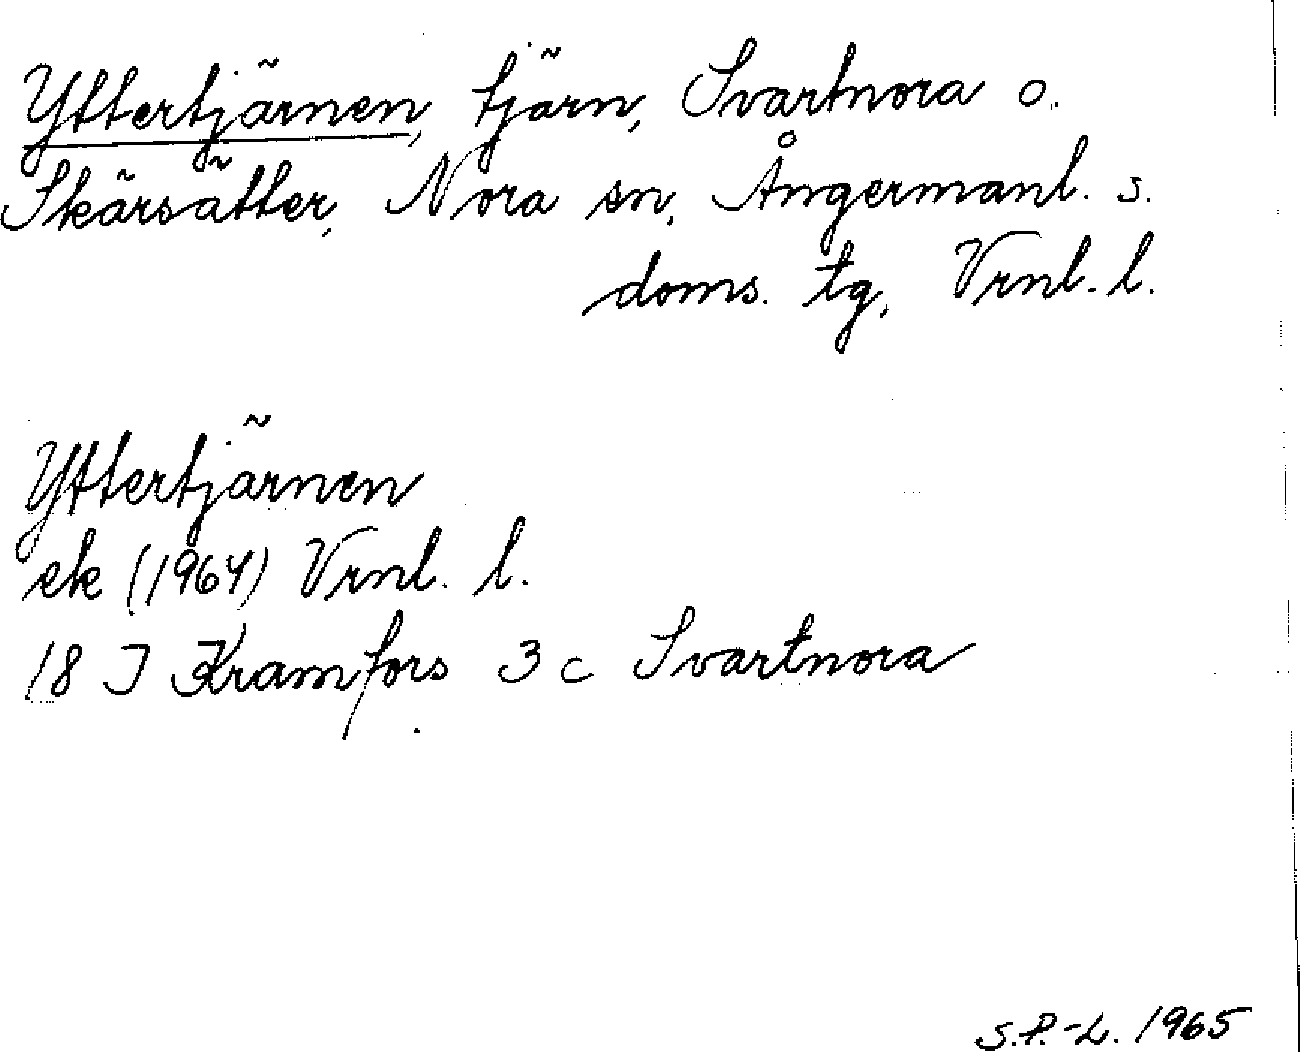 Yttertjärnen, tjärn, Svartnora o.
Skärsätter, Nora sn, Ångermanl. s.
doms. tg, Vrnl. l.
Yttertjärnen
ek (1964) Vrnl. l.
18 J Kramfors 3 c Svartnora
S.P.-L. 1965